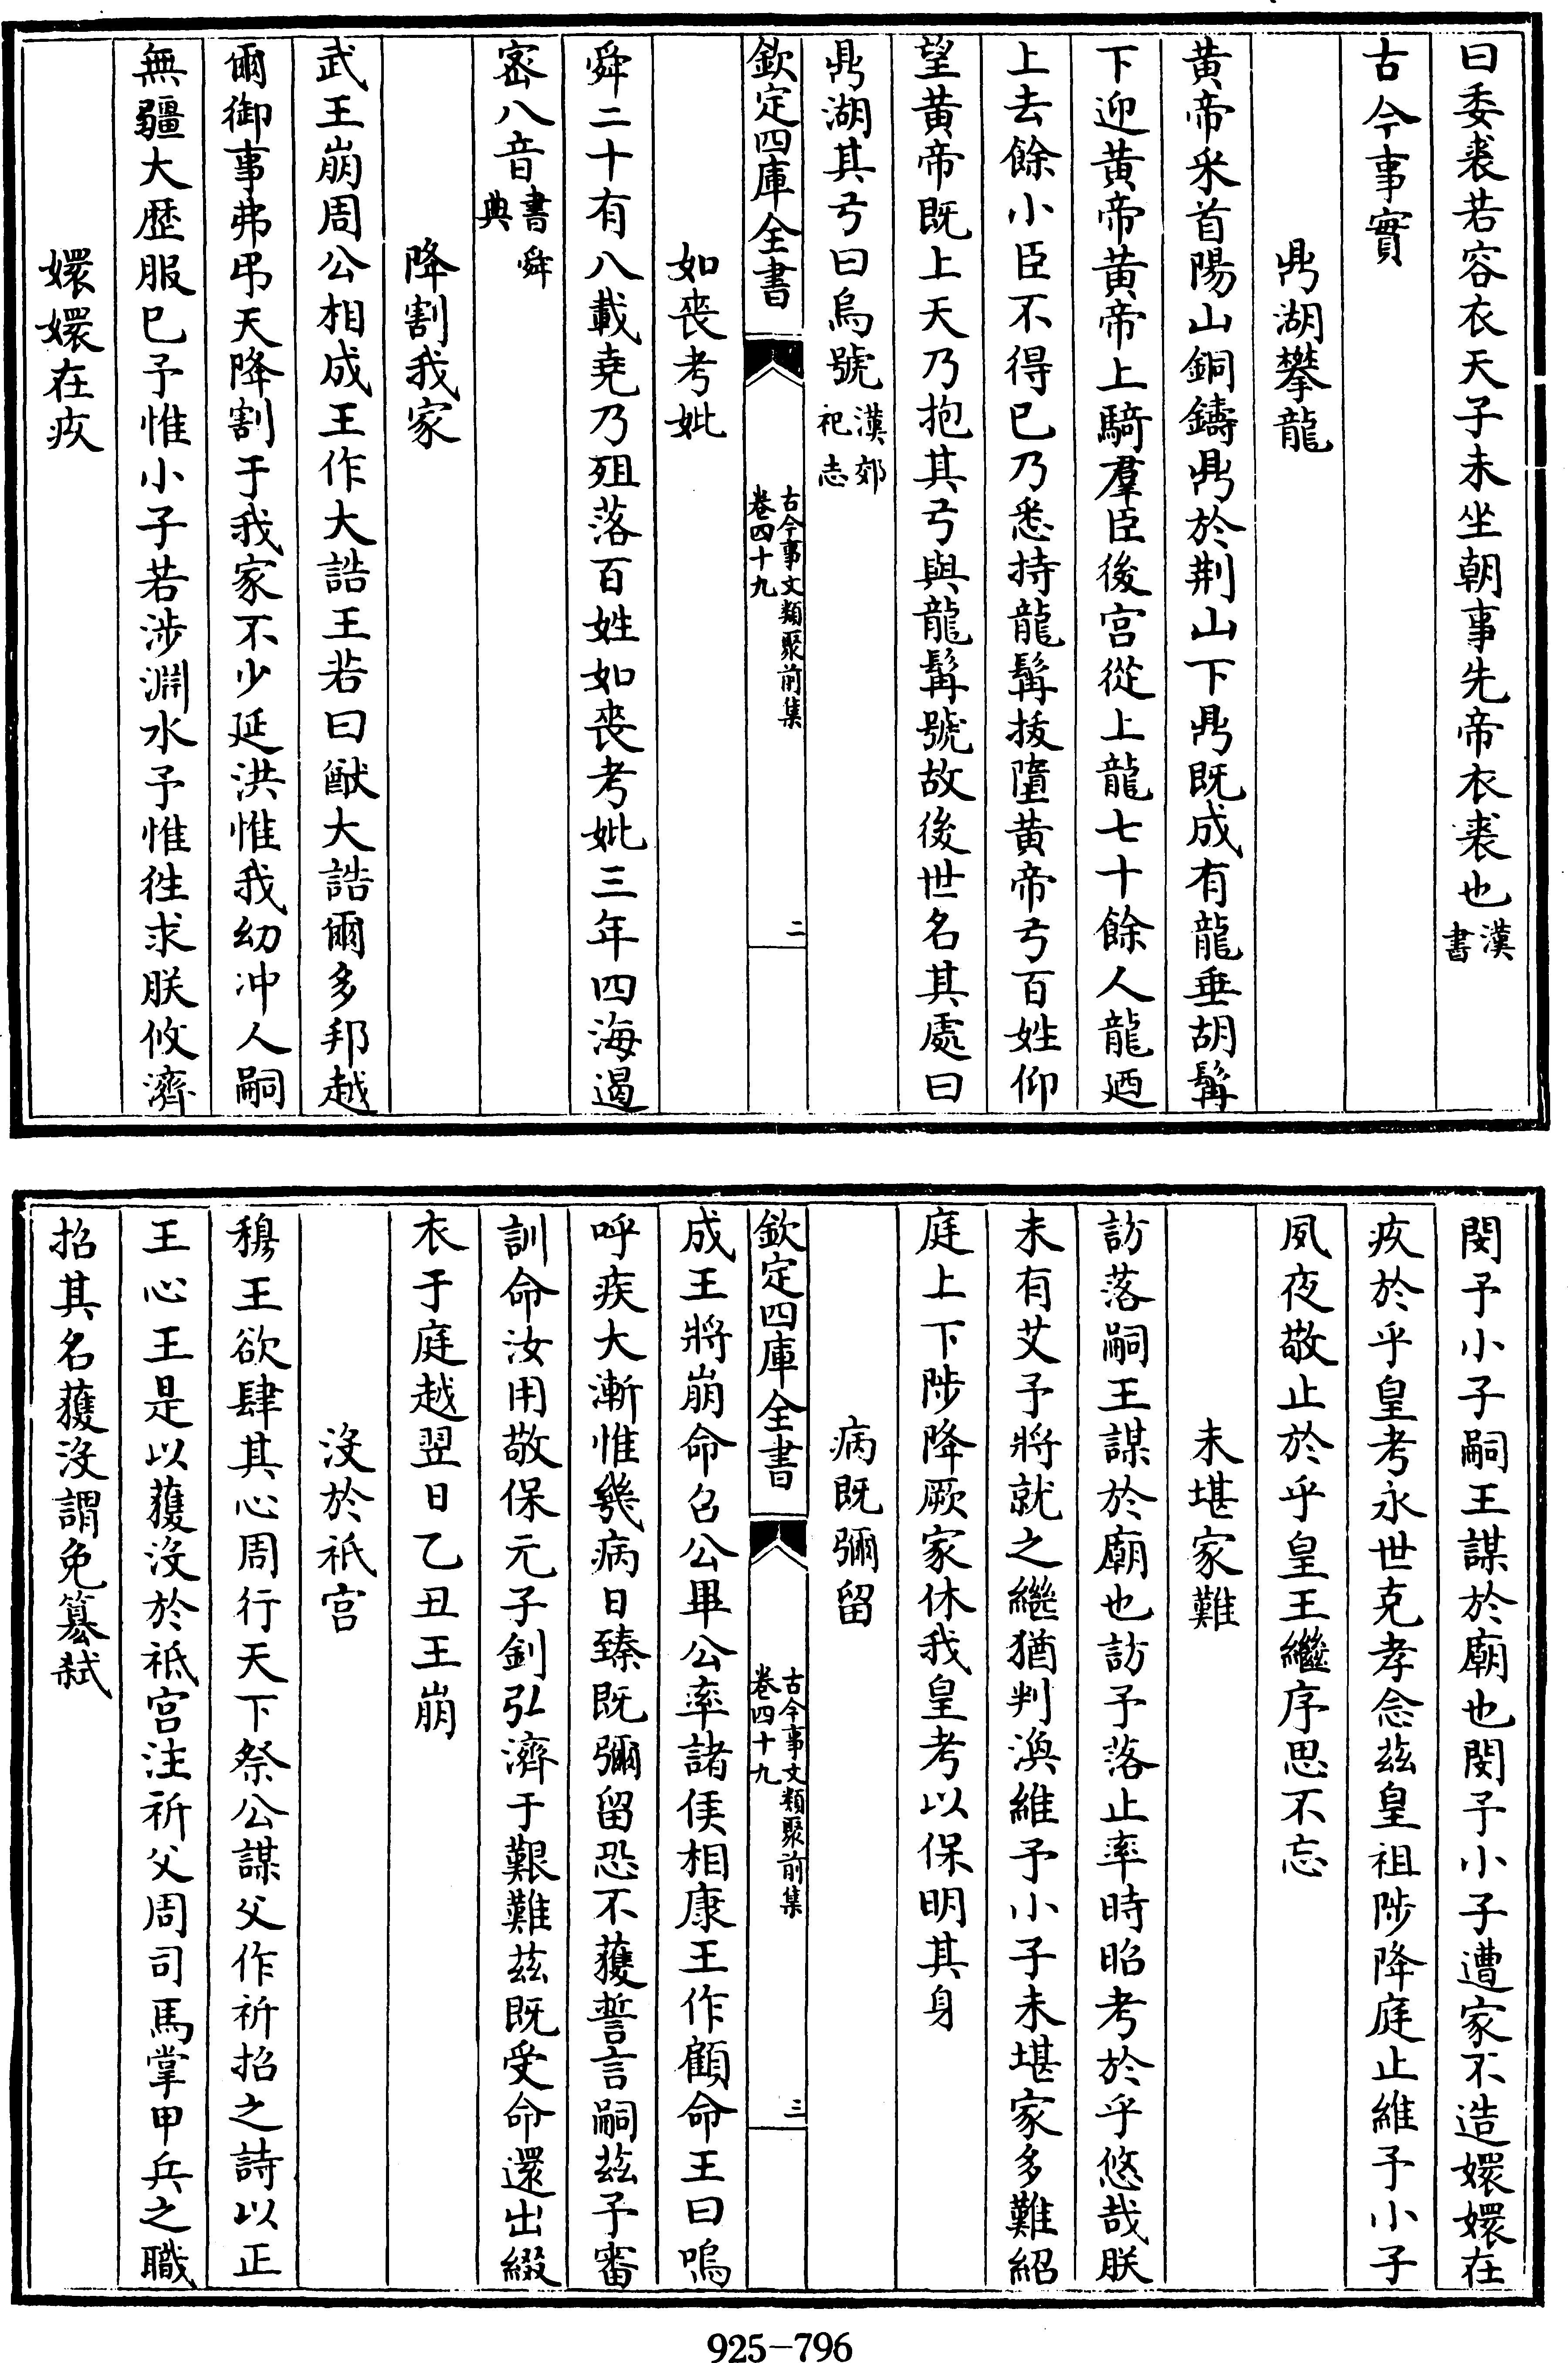 曰委裘若容衣天子未坐朝事先帝衣裘也漢書
古今事實
鼎湖攀龍
黄帝采首陽山銅鑄鼎於荆山下鼎既成有龍垂胡髯
下迎黄帝黄帝上騎羣臣後宫從上龍七十餘人龍廼
上去餘小臣不得已乃悉持龍髯拔墮黄帝弓百姓仰
望黄帝既上天乃抱其弓與龍髯號故後世名其處曰
鼎湖其弓曰烏號漢郊祀志
欽定四庫全書 古今事文類聚前集 卷四十九 二
如喪考妣
舜二十有八載堯乃殂落百姓如喪考妣三年四海遏
密八音書舜典
降割我家
武王崩周公相成王作大誥王若曰猷大誥爾多邦越
爾御事弗弔天降割于我家不少延洪惟我幼冲人嗣
無疆大歴服已予惟小子若涉淵水予惟徃求朕攸濟
嬛嬛在疚
閔予小子嗣王謀於廟也閔予小子遭家不造嬛嬛在
疚於乎皇考永世克孝念兹皇祖陟降庭止維予小子
夙夜敬止於乎皇王繼序思不忘
未堪家難
訪落嗣王謀於廟也訪予落止率時昭考於乎悠哉朕
未有艾予將就之繼猶判渙維予小子未堪家多難紹
庭上下陟降厥家休我皇考以保明其身
病既彌留
欽定四庫全書 古今事文類聚前集 卷四十九 三
成王將崩命召公畢公率諸侯相康王作顧命王曰嗚
呼疾大漸惟幾病日臻既彌留恐不獲誓言嗣兹予審
訓命汝用敬保元子釗弘濟于艱難兹既受命還出綴
衣于庭越翌日乙丑王崩
沒於祇宫
穆王欲肆其心周行天下祭公謀父作祈招之詩以正
王心王是以獲沒於祗宫注祈父周司馬掌甲兵之職
招其名獲沒謂免簒弑
925-796